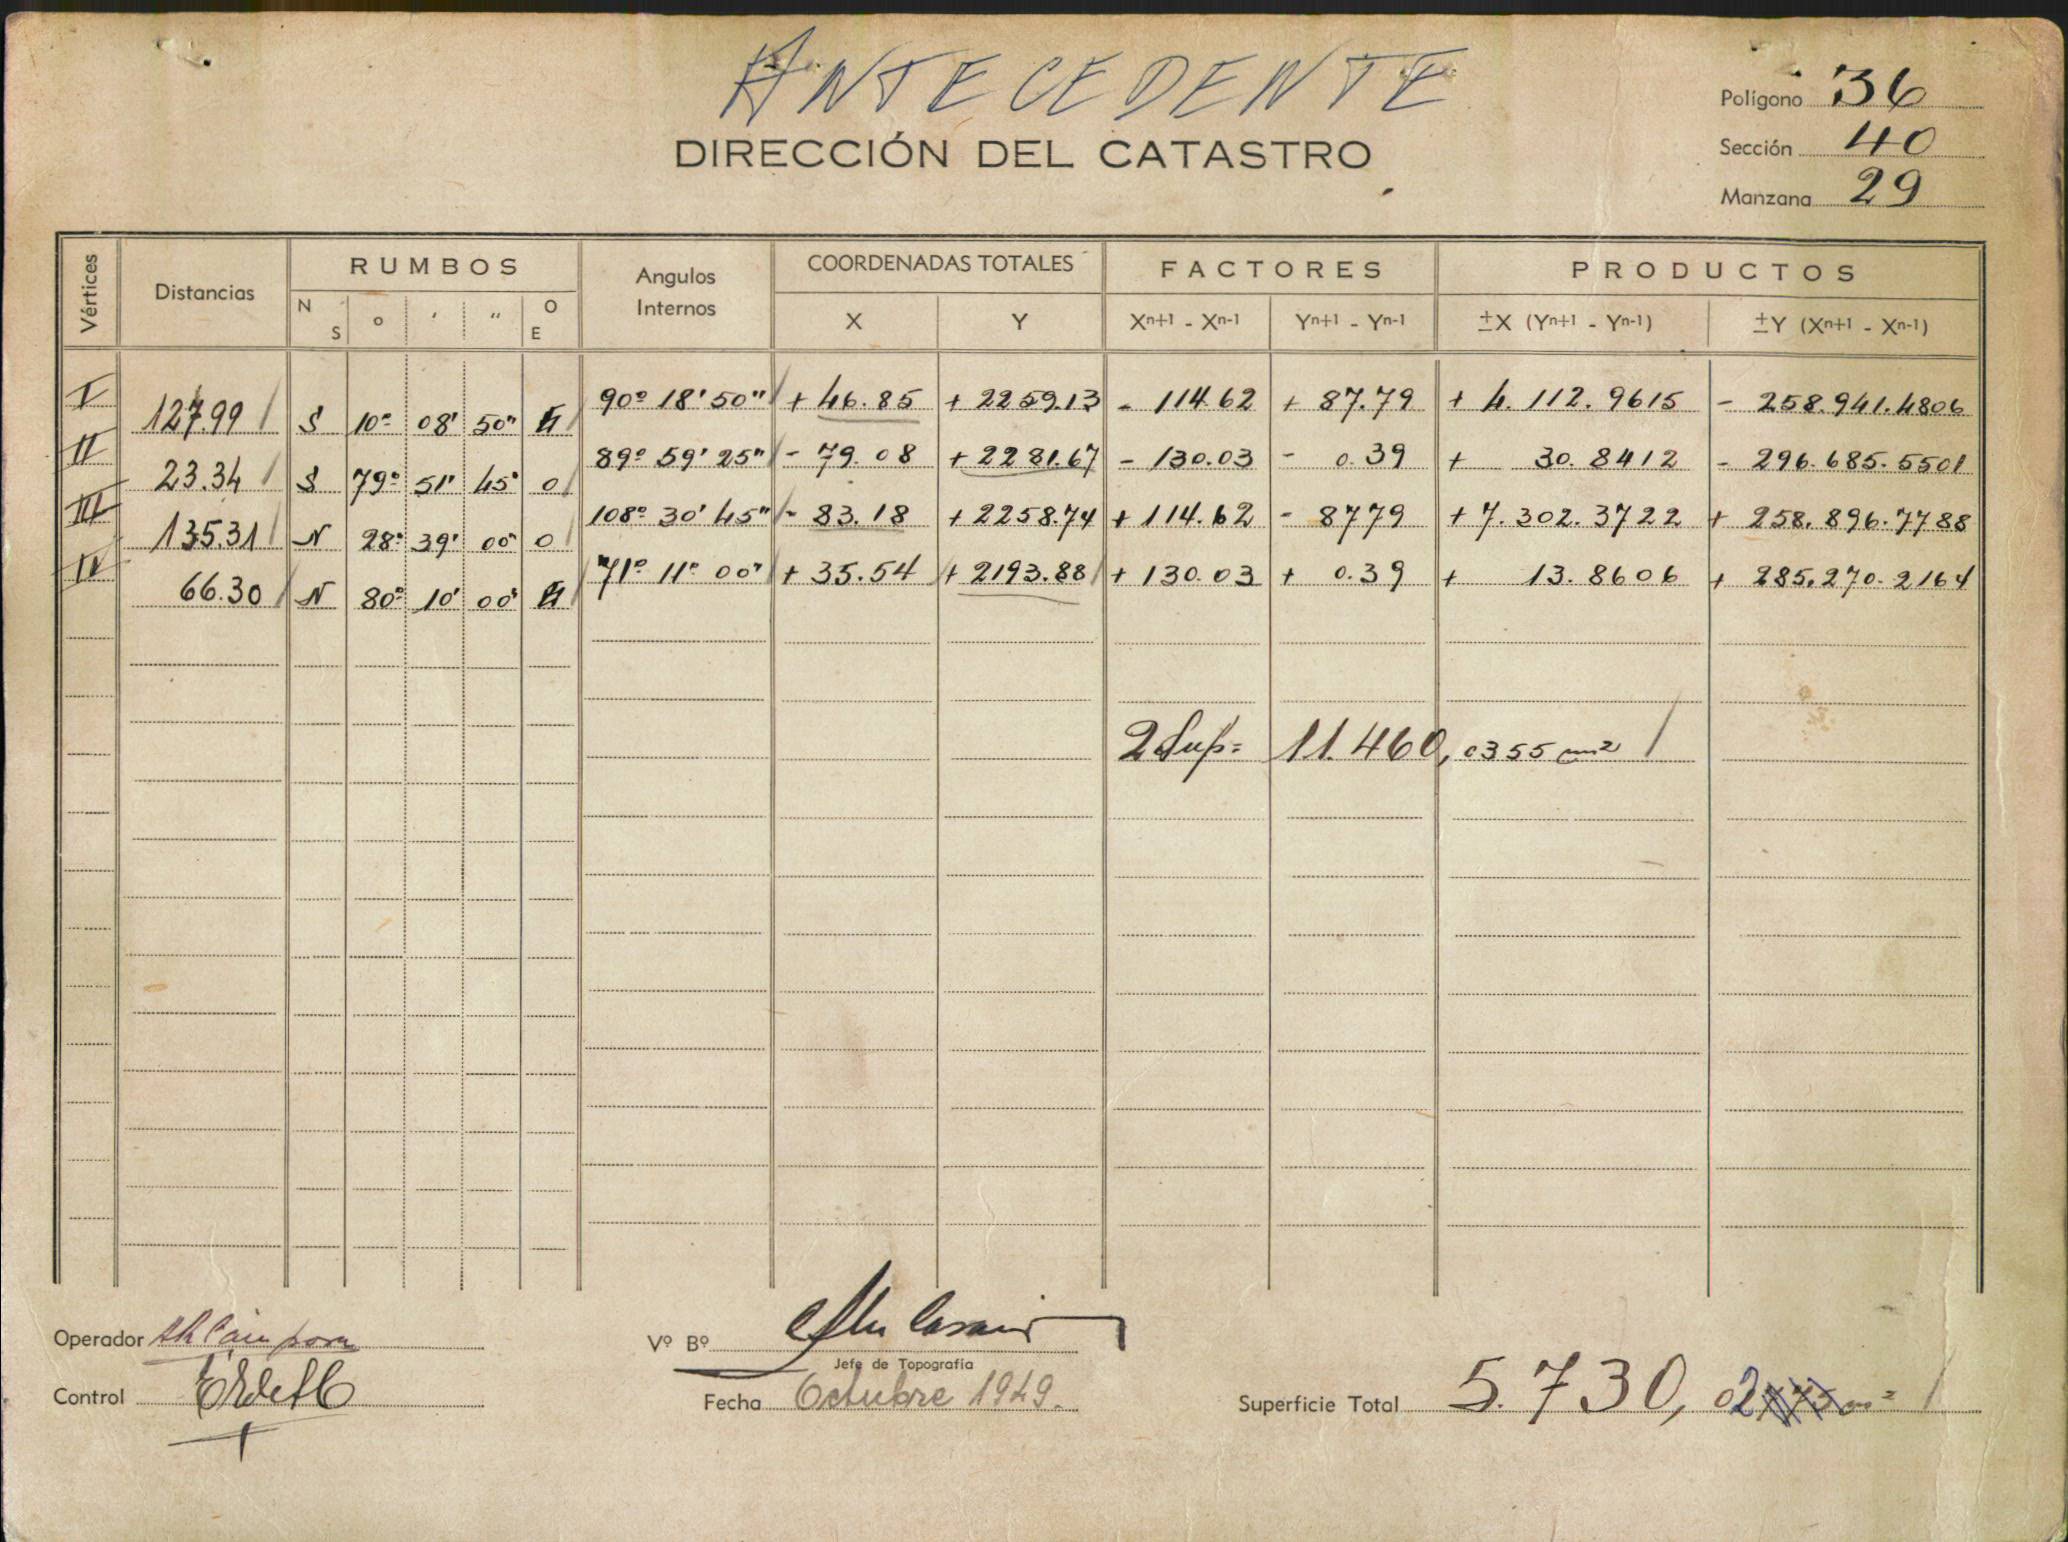 ANTECEDENTE
DIRECCIÓN DEL CATASTRO
Polígono 36
Sección 40
Manzana 29
Vértices Distancias RUMBOS Angulos Internos COORDENADAS TOTALES FACTORES PRODUCTOS
N S o ′ ″ O E X Y Xn+1 - Xn-1 Yn+1 - Yn-1 ±X (Yn+1 - Yn-1) ±Y (Xn+1 - Xn-1)
I 90º 18' 50" + 46.85 + 2259.13 - 114.62 + 87.79 + 4.112.9615 - 258.941.4806
127.99 S 10º 08' 50" E
II 89º 59' 25" - 79.08 + 2281.67 - 130.03 - 0.39 + 30.8412 - 296.685.5501
23.34 S 79º 51' 45" O
III 108º 30' 45" - 83.18 + 2258.74 + 114.62 - 8779 + 7.302.3722 + 258.896.7788
135.31 N 28º 39' 00" O
IV 71º 11º 00" + 35.54 + 2193.88 + 130.03 + 0.39 + 13.8606 + 285.270.2164
66.30 N 80º 10' 00" E
2 Sup= 11.460,0355 m²
Operador
Vº Bº
Jefe de Topografía
Control
Fecha Octubre 1949.
Superficie Total 5.730,02 m²